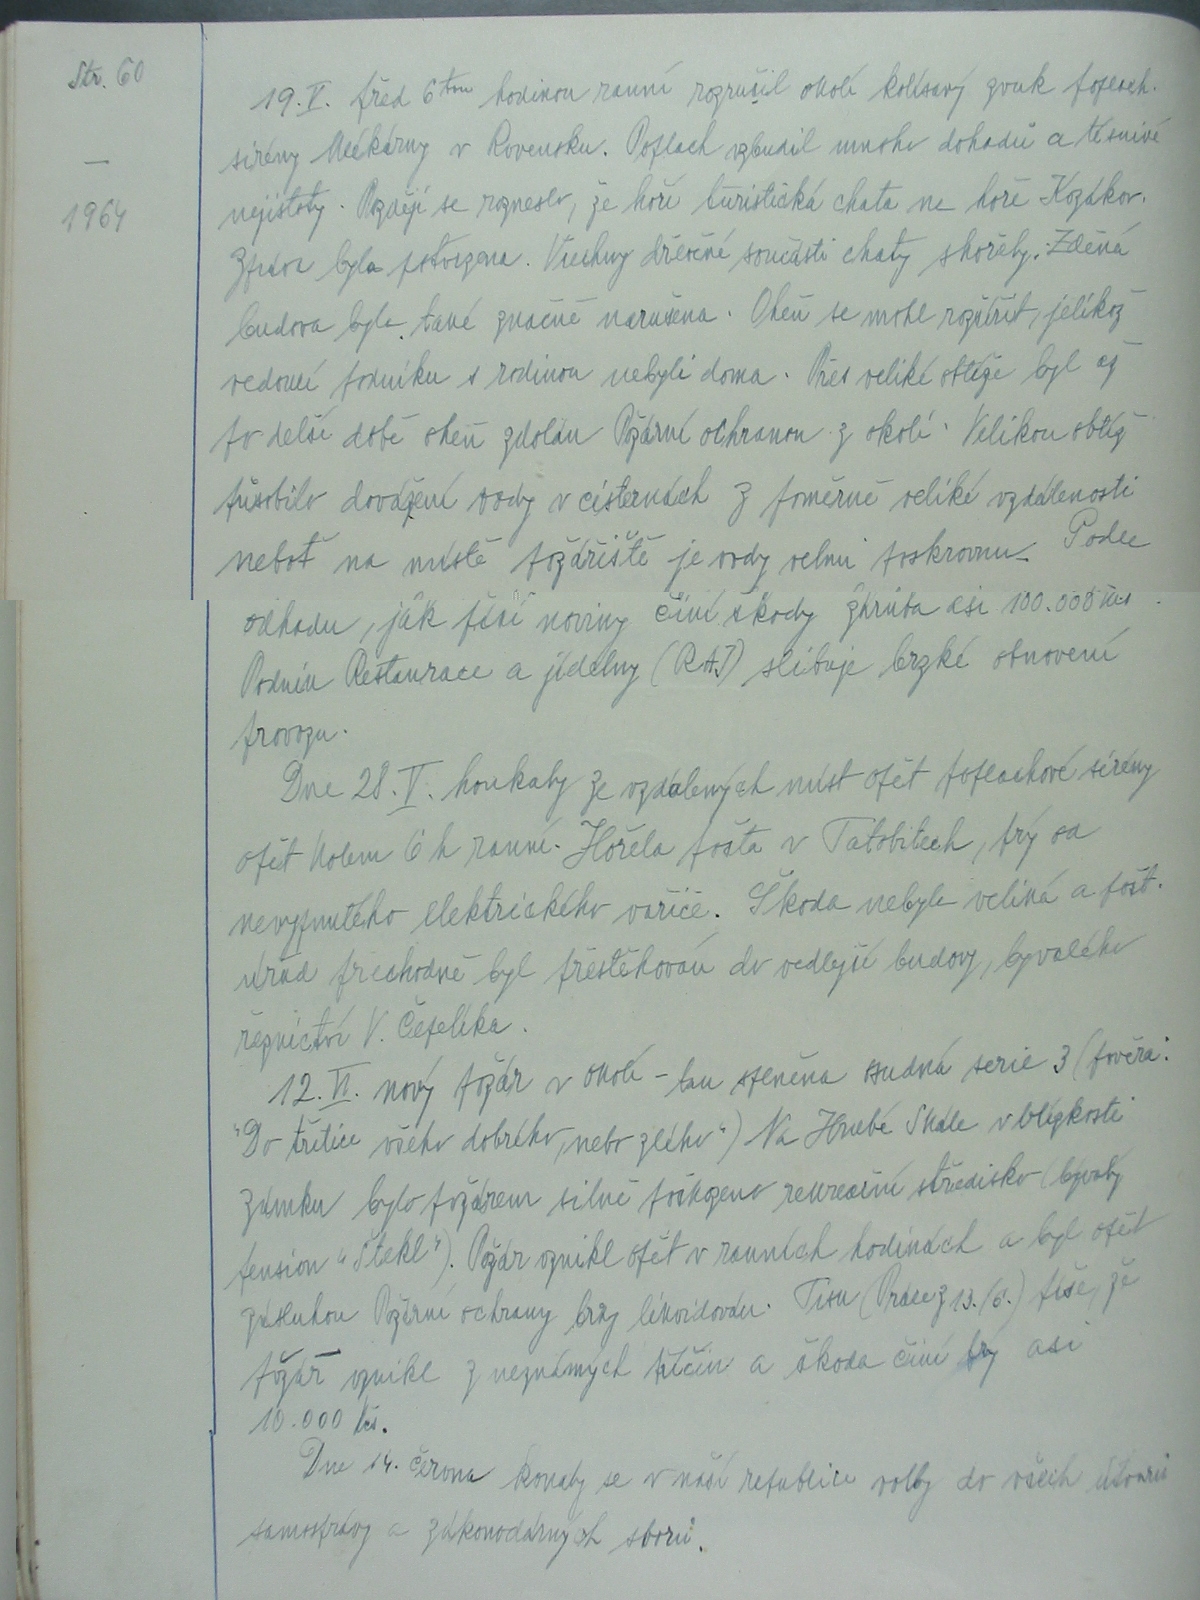 Str. 60
—
1964
19. V. před 6tou hodinou ranní rozrušil okolí kolísavý zvuk poplach.
sirény Mlékárny v Rovensku. Poplach vzbudil mnoho dohadů a tísnivé
nejistoty. Později se rozneslo, že hoří turistická chata na hoře Kozákov.
Zpráva byla potvrzena. Všechny dřevěné součásti chaty shořely. Zděná
budova byla také značně narušena. Oheň se mohl rozšířit, jelikož
vedoucí podniku s rodinou nebyli doma. Přes veliké obtíže byl až
po delší době oheň zdolán Požární ochranou z okolí. Velikou obtíž
působilo dovážení vody v cisternách z poměrně veliké vzdálenosti
neboť na místě požářiště je vody velmi poskrovnu. Podle
odhadu, jak píší noviny činí škody zhruba asi 100.000 Kčs.
Podnik Restaurace a jídelny (RAJ) slibuje brzké obnovení
provozu.
Dne 28. V. houkaly ze vzdálených míst opět poplachové sirény
opět kolem 6 h ranní. Hořela pošta v Tatobitech, prý od
nevypnutého elektrického vařiče. Škoda nebyla veliká a pošt.
úřad přechodně byl přestěhován do vedlejší budovy, bývalého
řeznictví V. Čepelíka.
12. VI. nový požár v okolí – tím splněna osudná serie 3 (pověra:
"Do třetice všeho dobrého, nebo zlého") Na Hrubé Skále v blízkosti
zámku bylo požárem silně poškozeno rekreační středisko (bývalý
pension "Štekl"). Požár vznikl opět v ranních hodinách a byl opět
zásluhou Požární ochrany brzy likvidován. Tisk (Práce z 13./6.) píše, že
požár vznikl z neznámých příčin a škoda činí prý asi
10.000 Kčs.
Dne 14. června konaly se v naší republice volby do všech útvarů
samosprávy a zákonodárných sborů.